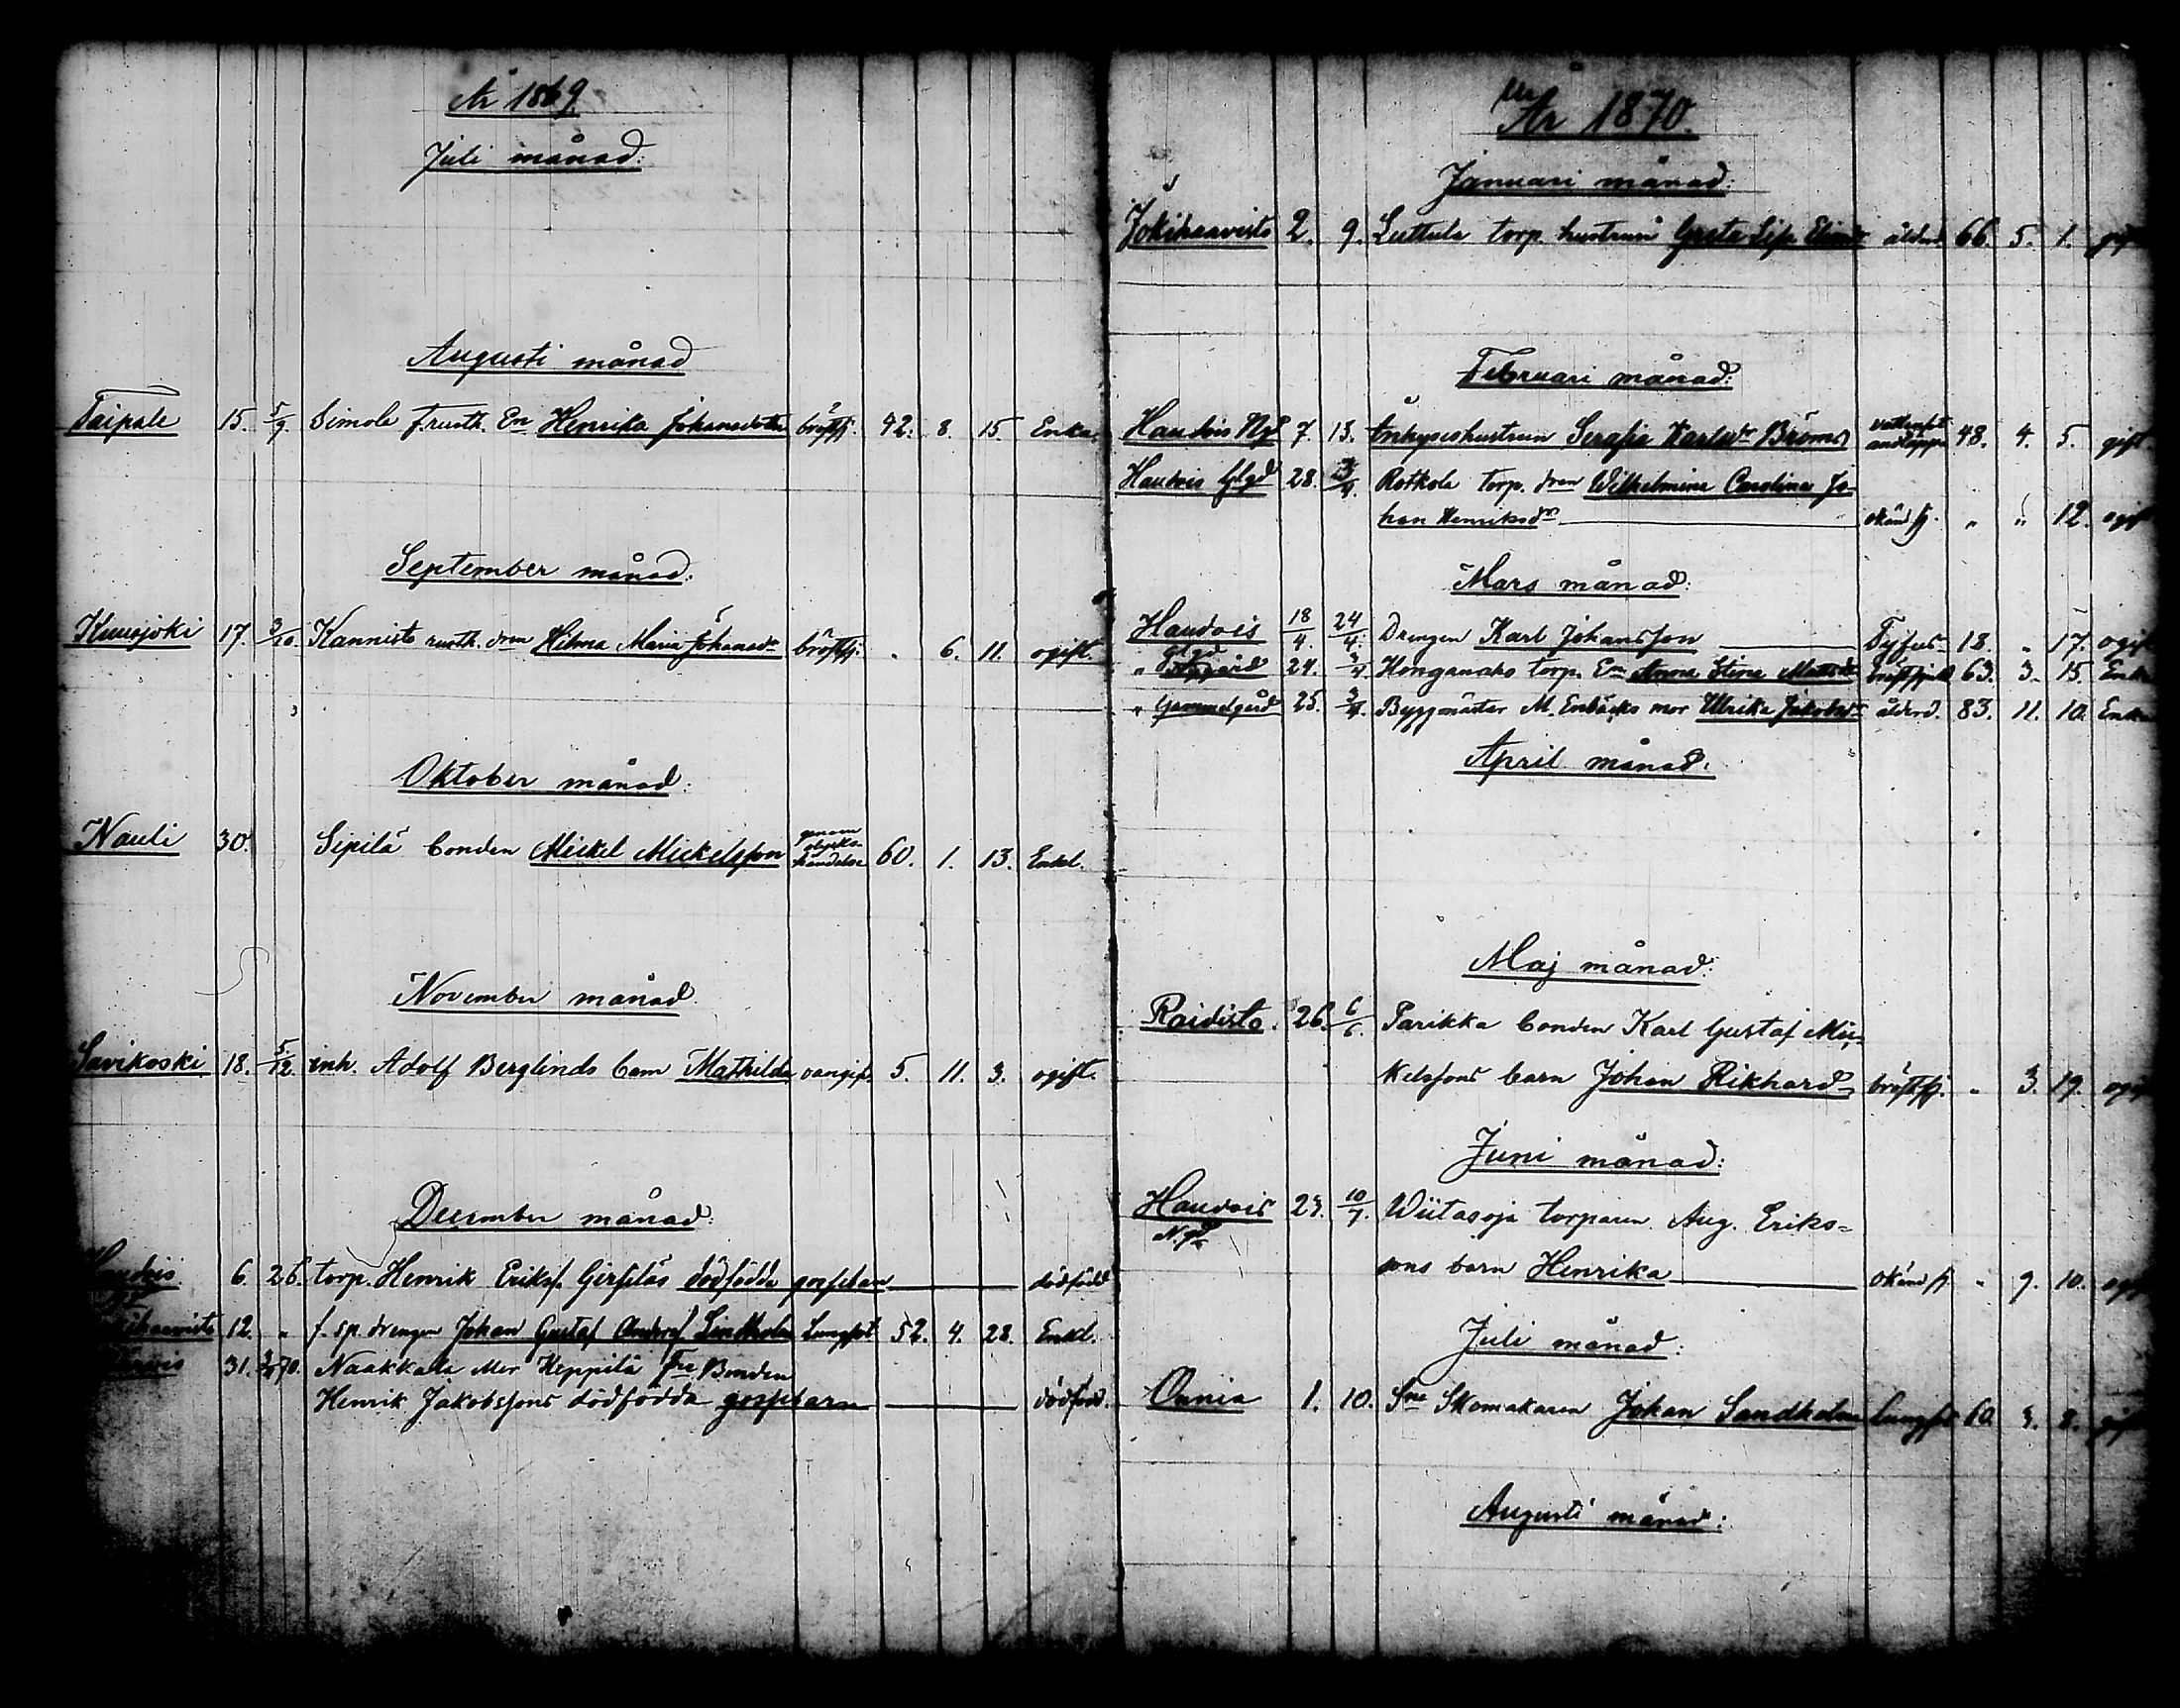 År 1869.
Juli månad:
Augusti månad
Taipale 15. 5/9. Simola f. rusth. En Henrika Johansdotter bröstsj. 42. 8. 15. Enka.
September månad:
Kuusjoki 17. 3/10. Kannisto rusth. dren Hilma Maria Johansdr bröstsj. „ 6. 11. ogift.
Oktober månad:
Nauli 30. Sipilä bonden Mickel Mickelsson genom olycks- händelse 60. 1. 13. Enkl.
November månad
Savikoski 18. 5/12. inh. Adolf Berglinds barn Mathilda 5. 11. 3. ogift.
December månad:
6. 26. torp. Henrik Erikss. dödfödda gossebarn dödfödd
12. „ f. sp. drengen Johan Gustaf Lindholm Lungsot 52. 4. 28. Enkl.
31. Naakkala Bonden
Henrik Jakobssons dödfödda gossebarn dödfödd.
År 1870.
Januari månad:
Jokihaavisto 2. 9. Luttula torp. hustrun Greta ålderd 66. 5. 1. gift
Februari månad:
Haudois Ngd 7. 13. Inhyseshustrun Serafia Karlsdr 48. 4. 5. gift.
Haudois Glgd 28. Rotkola torp. dren Wilhelmina Carolina Jo-
han Henriksdr okänd sj. „ „ 12. ogift
Mars månad:
Haudois 18/4. 24/4. Drengen Karl Johansson Tyfus 18. „ 17. ogift
Glgd
„ 24. 3/4 torp. En Anna Stina Mattsdr bröstsjukd 63. 3. 15. Enka
„ Gammelgård 25. 3/4. Byggmäster M. Enbäcks mor Ulrika Jakobsdr ålderd. 83. 11. 10. Enka
April månad.
Maj månad:
Raidisto. 26. 6/6. Parikka bonden Karl Gustaf Mic-
kelssons barn Johan Rikhard bröstsj. „ 3. 19. ogift
Juni månad:
Haudois 23. 10/7. Wiitasoja torparen Aug. Eriks-
N.gd
sons barn Henrika okänd sj „ 9. 10. ogift
Juli månad:
Onnia 1. 10. Sne Skomakaren Johan Sandholm Lungsot 60 3. 8. gift
Augusti månad: